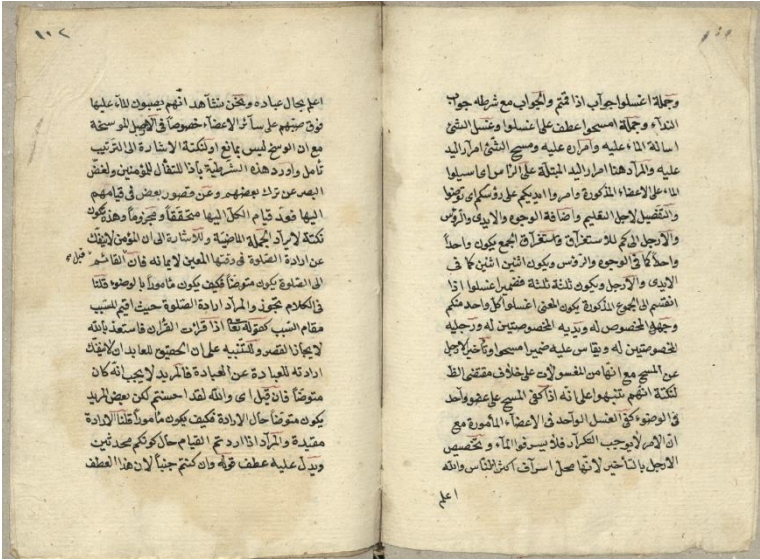 وجملة اغسلوا جواب اذا قمتم والجواب مع شرطه جواب
النداء وجملة امسحوا عطف على اغسلوا وغسل الشئ
اسالة الماء عليه وامراره عليه ومسح الشئ امرار اليد
عليه والمراد هنا امرار اليد المبتلة على الراس اى اسيلوا
الماء على الاعضاء المذكورة وامروا ايديكم على رؤسكم اى توضوا
والتفصيل لاجل التعليم واضافة الوجوه والايدى والرؤس
والارجل الى كم للاستغراق فاستغراق الجمع يكون واحدا
واحدا كما فى الوجوه والرؤس ويكون اثنين اثنين كما فى
الايدى والارجل ويكون ثلثة ثلثة فضمير اغسلوا اذا
انقسم الى الجموع المذكورة يكون المعنى اغسلوا كل واحد منكم
وجهه المخصوص له ويديه المخصوصتين له ورجليه
المخصوصتين له ويقاس عليه ضمير امسحوا وتأخير الارجل
عن المسح مع انها من المغسولات على خلاف مقتضى الظ
لنكتة انهم تنبهوا على انه اذا كفى المسح على عضو واحد
فى الوضوء كفى الغسل الواحد فى الاعضاء المأمورة مع
ان الامر لا يوجب التكرار فلا يسرفوا الماء وتخصيص
الارجل بالتأخير لانها محل اسراف اكثر الناس والله
اعلم
١٠٢
اعلم بحال عباده ونحن نشاهد انهم يصبون الماء عليها
فوق صبهم على سائر الاعضاء خصوصا فى الارجل الموسخة
مع ان الوسخ ليس بمانع او لنكتة الاشارة الى الترتيب
تأمل واورد هذه الشرطية باذا للتفأل للمؤمنين ولغض
البصر عن ترك بعضهم وعن قصور بعض فى قيامهم
اليها فعد قيام الكل اليها متحققا ومجزوما وهذه تكون
نكتة لايراد الجملة الماضية وللاشارة الى ان المؤمن لا ينفك
عن ارادة الصلوة فى وقتها المعين لايمانه فان قيل القائم
الى الصلوة يكون متوضئا فكيف يكون مأمورا بالوضوء قلنا
فى الكلام تجوز والمراد ارادة الصلوة حيث اقيم المسبب
مقام السبب كقوله تعا اذا قرات القران فاستعذ بالله
لايجاز القصر وللتنبيه على ان الحقيق للعابد ان لا ينفك
ارادته للعبادة عن العبادة فالمريد لا يجب انه كان
متوضئا فان قيل اى والله لقد احسنتم لكن بعض المريد
يكون متوضئا حال الارادة فكيف يكون مأمورا قلنا الارادة
مقيدة والمراد اذا اردتم القيام حال كونكم محدثين
ويدل عليه عطف قوله وان كنتم جنبا لان هذا العطف